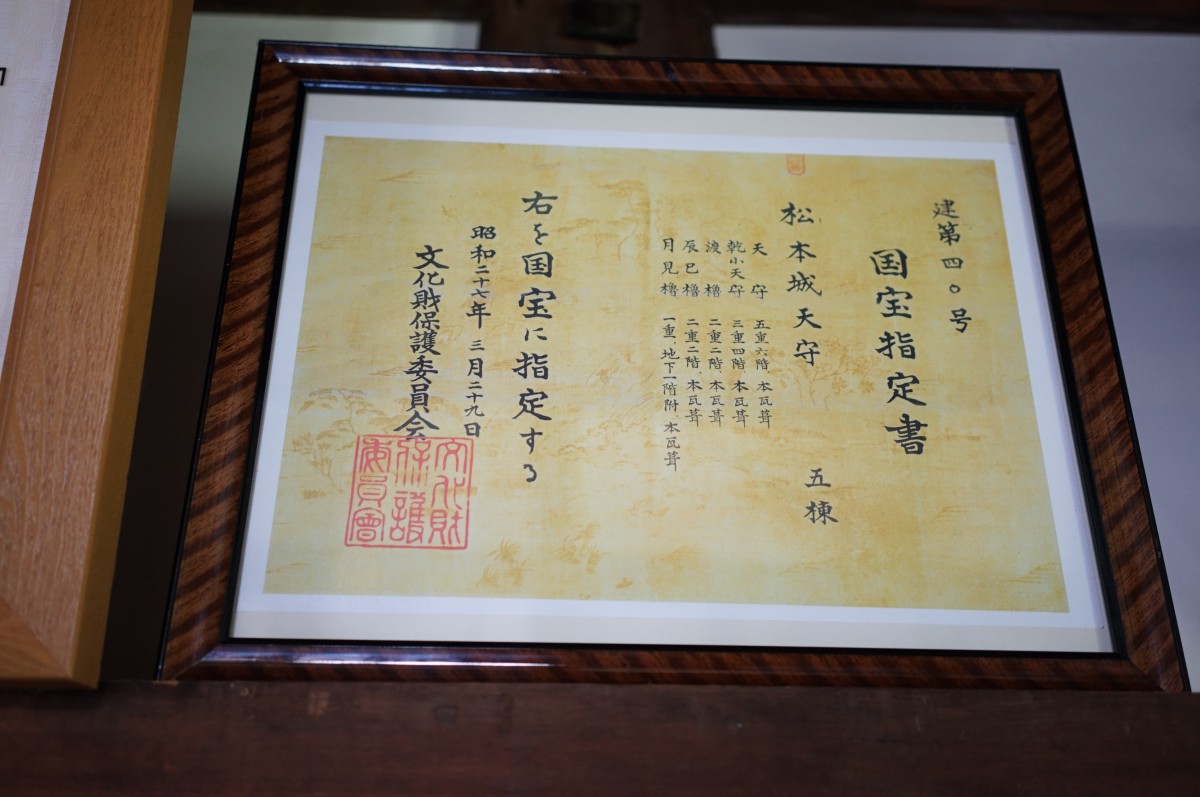 建第四〇号
国宝指定書
松本城天守 五棟
天守 五重六階、本瓦葺
乾小天守 三重四階、本瓦葺
渡櫓 二重二階、本瓦葺
辰巳櫓 二重二階、本瓦葺
月見櫓 一重、地下一階附 本瓦葺
右を国宝に指定する
昭和二十七年 三月二十九日
文化財保護委員会
文化財
保護
委員會